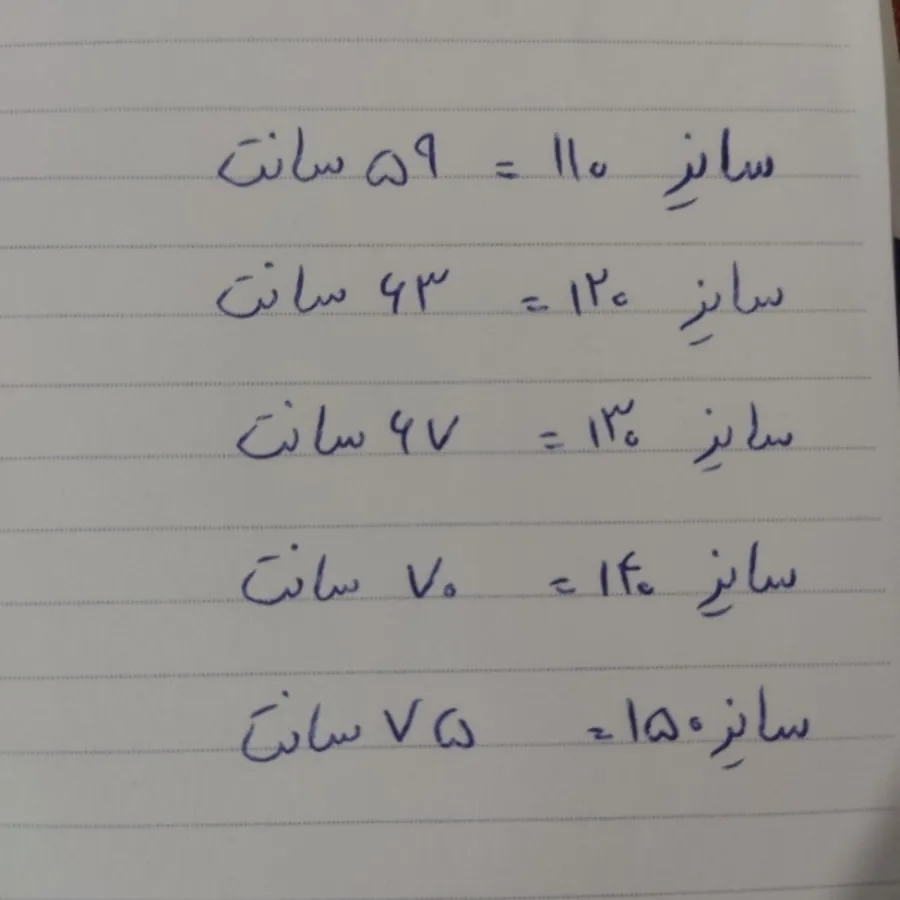 سایز ۱۱۰ = ۵۹ سانت
سایز ۱۲۰ = ۶۳ سانت
سایز ۱۳۰ = ۶۷ سانت
سایز ۱۴۰ = ۷۰ سانت
سایز ۱۵۰ = ۷۵ سانت